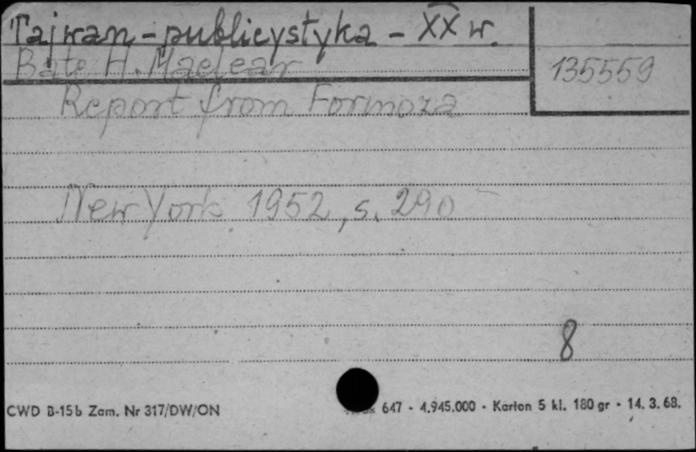 Tajwan - publicystyka - XX w.
Bate H. Maclear
135559
Report from Formoza
New York 1952, s. 290
8
CWD B-15b Zam. Nr 317/DW/ON
647 - 4.945.000 - Karton 5 kl. 180 gr - 14. 3. 68.